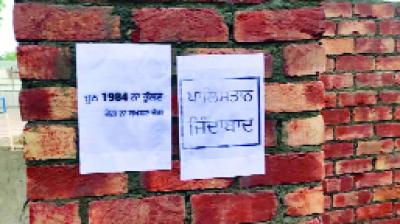 ਜੂਨ 1984 ਨਾ ਭੁੱਲਣ
ਯੋਗ ਨਾ ਬਖਸ਼ਣ ਯੋਗ
ਖਾਲਿਸਤਾਨ
ਜਿੰਦਾਬਾਦ